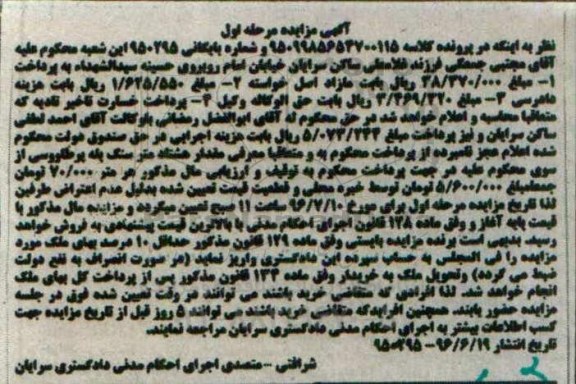 آگهی مزایده مرحله اول
نظر به اینکه در پرونده کلاسه ۹۵۰۹۹۸۵۶۵۳۷۰۰۱۱۵ و شماره بایگانی ۹۵۰۲۹۵ این شعبه محکوم علیه
آقای مجتبی جمعگی فرزند غلامعلی ساکن سرایان خیابان امام روبروی حسینه سیدالشهداء به پرداخت
۱- مبلغ ۳۸/۳۷۰/۰۰۰ ریال بابت مازاد اصل خواسته ۲- مبلغ ۱/۶۲۵/۵۵۰ ریال بابت هزینه
دادرسی ۳- مبلغ ۲/۲۶۹/۳۲۰ ریال بابت حق الوکاله وکیل ۴- پرداخت خسارت تاخیر تادیه که
متعاقبا محاسبه و اعلام خواهد شد در حق محکوم له آقای ابوالفضل رمضانی باوکالت آقای احمد لطفی
ساکن سرایان و نیز پرداخت مبلغ ۵/۰۷۳/۲۴۳ ریال بابت هزینه اجرایی در حق صندوق دولت محکوم
شده اعلام عجز نامبرده از پرداخت محکوم به و متعاقبا معرفی مقدار هشتاد متر سنگ پله پرطاووسی از
سوی محکوم علیه در جهت پرداخت محکوم به توقیف و ارزیابی مال مذکور هر متر ۷۰/۰۰۰ تومان
جمعا مبلغ ۵/۶۰۰/۰۰۰ تومان توسط خبره محلی و قطعیت قیمت تعیین شده بدلیل عدم اعتراض طرفین
لذا تاریخ مزایده مرحله اول برای مورخ ۹۶/۷/۱۰ ساعت ۱۱ صبح تعیین میگردد و مزایده مال مذکور با
قیمت پایه آغاز و وفق ماده ۱۲۸ قانون اجرای احکام مدنی با بالاترین قیمت پیشنهادی به فروش خواهد
رسید. بدیهی است برنده مزایده بایستی وفق ماده ۱۲۹ قانون مذکور حداقل ۱۰ درصد بهای ملک مورد
مزایده را فی المجلس به حساب سپرده این دادگستری واریز نماید (در صورت انصراف به نفع دولت
ضبط می گردد) وتحویل ملک به خریدار وفق ماده ۱۳۴ قانون مذکور پس از پرداخت کل بهای ملک
انجام خواهد شد. لذا افرادی که متقاضی خرید باشند می توانند در وقت تعیین شده فوق در جلسه
مزایده حضور یابند. همچنین افرادیکه متقاضی خرید باشند می توانند ۵ روز قبل از تاریخ مزایده جهت
کسب اطلاعات بیشتر به اجرای احکام مدنی دادگستری سرایان مراجعه نمایند.
تاریخ انتشار ۹۶/۶/۱۹- ۹۵۰۲۹۵
شرافتی – متصدی اجرای احکام مدنی دادگستری سرایان